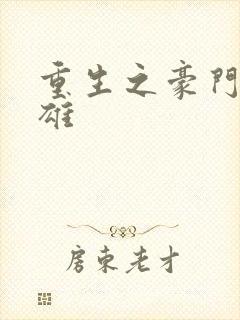 重生之豪門
雄
房東老才